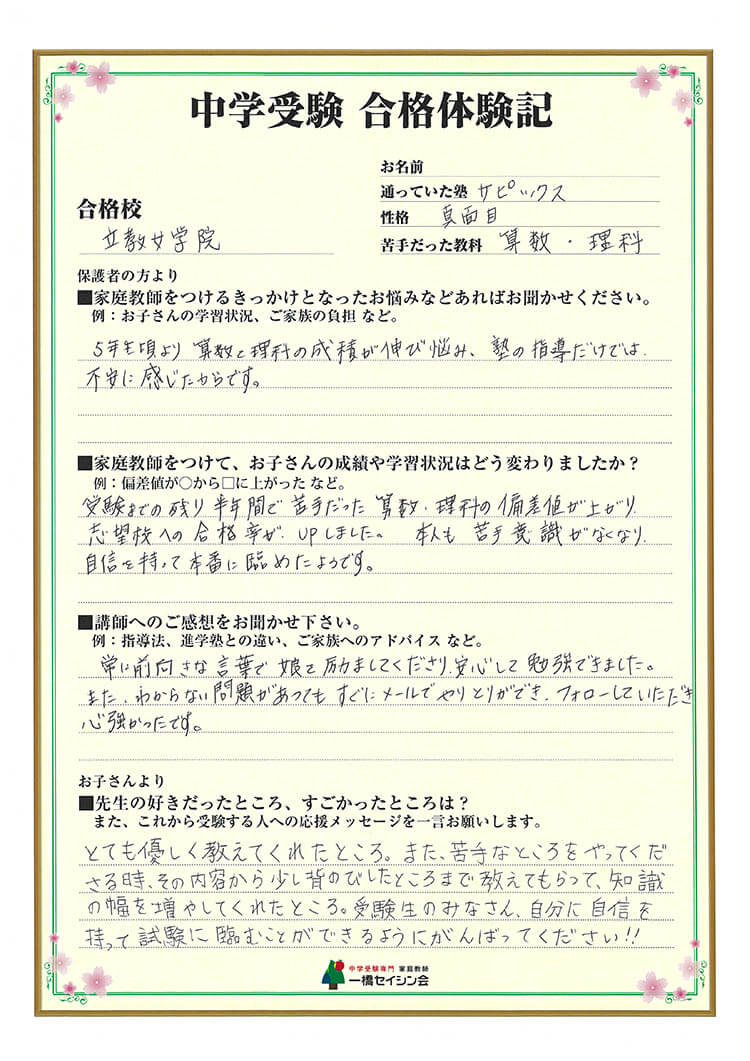 中学受験 合格体験記
お名前
通っていた塾 サピックス
合格校
性格 真面目
立教女学院
苦手だった教科 算数・理科
保護者の方より
■家庭教師をつけるきっかけとなったお悩みなどあればお聞かせください。
例：お子さんの学習状況、ご家族の負担 など。
5年生頃より 算数と理科の成積が伸び悩み、塾の指導だけでは
不安に感じたからです。
■家庭教師をつけて、お子さんの成績や学習状況はどう変わりましたか？
例：偏差値が○から□に上がった など。
受験までの残り半年間で苦手だった 算数・理科の偏差値が上がり
志望校への合格率が UPしました。 本人も 苦手意識がなくなり
自信を持って本番に臨めたようです。
■講師へのご感想をお聞かせ下さい。
例：指導法、進学塾との違い、ご家族へのアドバイス など。
常に前向きな言葉で 娘を励ましてくださり、安心して勉強できました。
また、わからない問題があっても すぐにメールでやりとりができ、フォローしていただき
心強かったです。
お子さんより
■先生の好きだったところ、すごかったところは？
また、これから受験する人への応援メッセージを一言お願いします。
とても優しく教えてくれたところ。また、苦手なところをやってくだ
さる時、その内容から少し背のびしたところまで教えてもらって、知識
の幅を増やしてくれたところ。受験生のみなさん、自分に自信を
持って試験に臨むことができるようにがんばってください!!
中学受験専門 家庭教師
一橋セイシン会